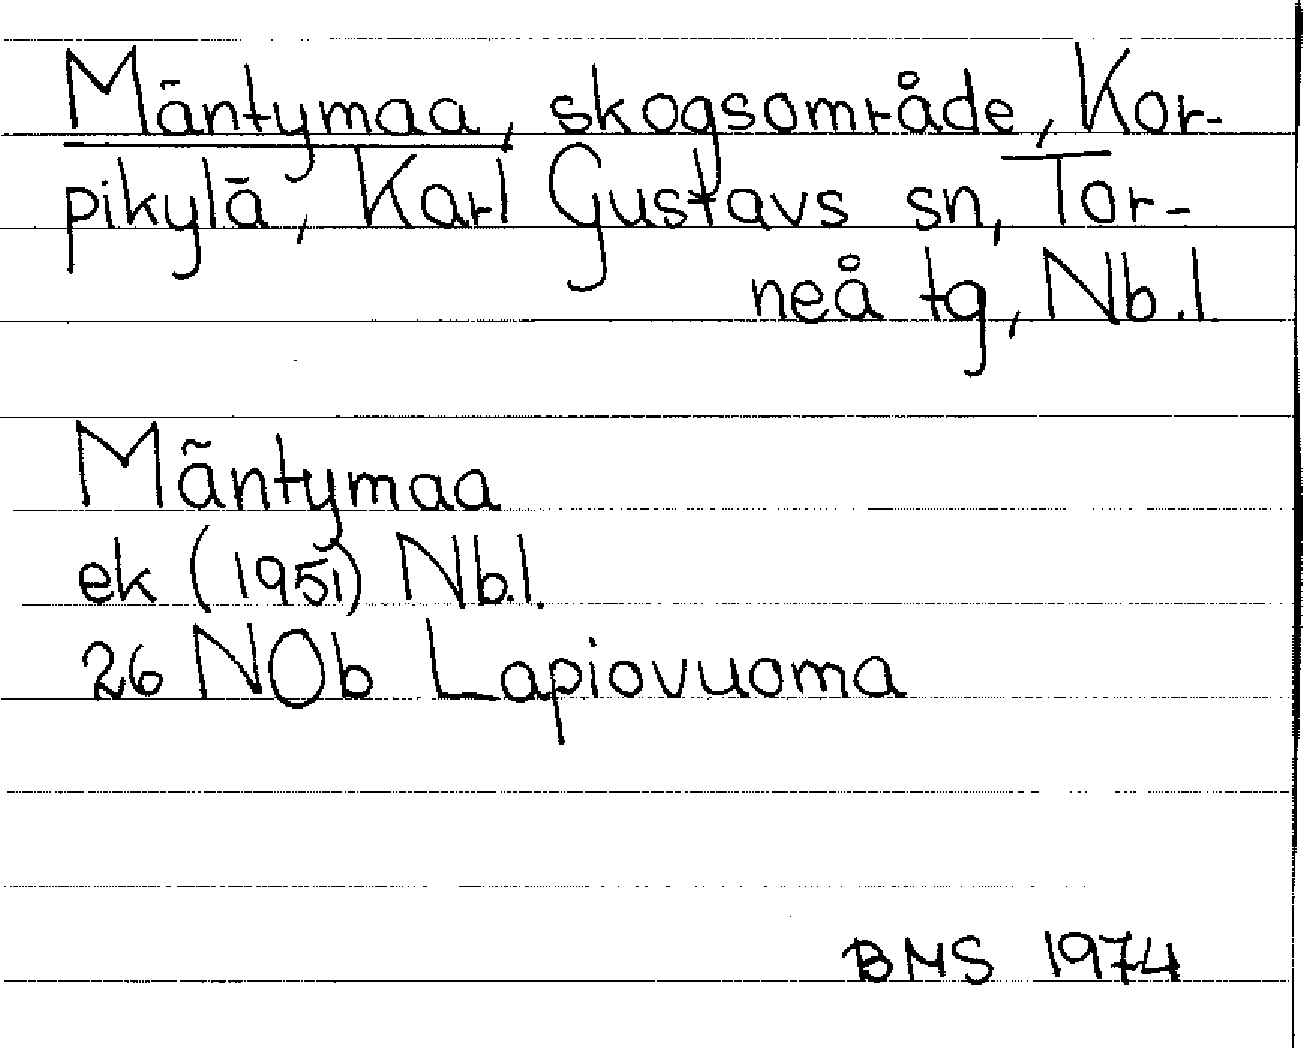 Mäntymaa, skogsområde, Kor-
pikylä, Karl Gustavs sn, Tor-
neå tg, Nb.l.
Mäntymaa
ek (1951) Nb.l.
26 NOb Lapiovuoma
BMS 1974